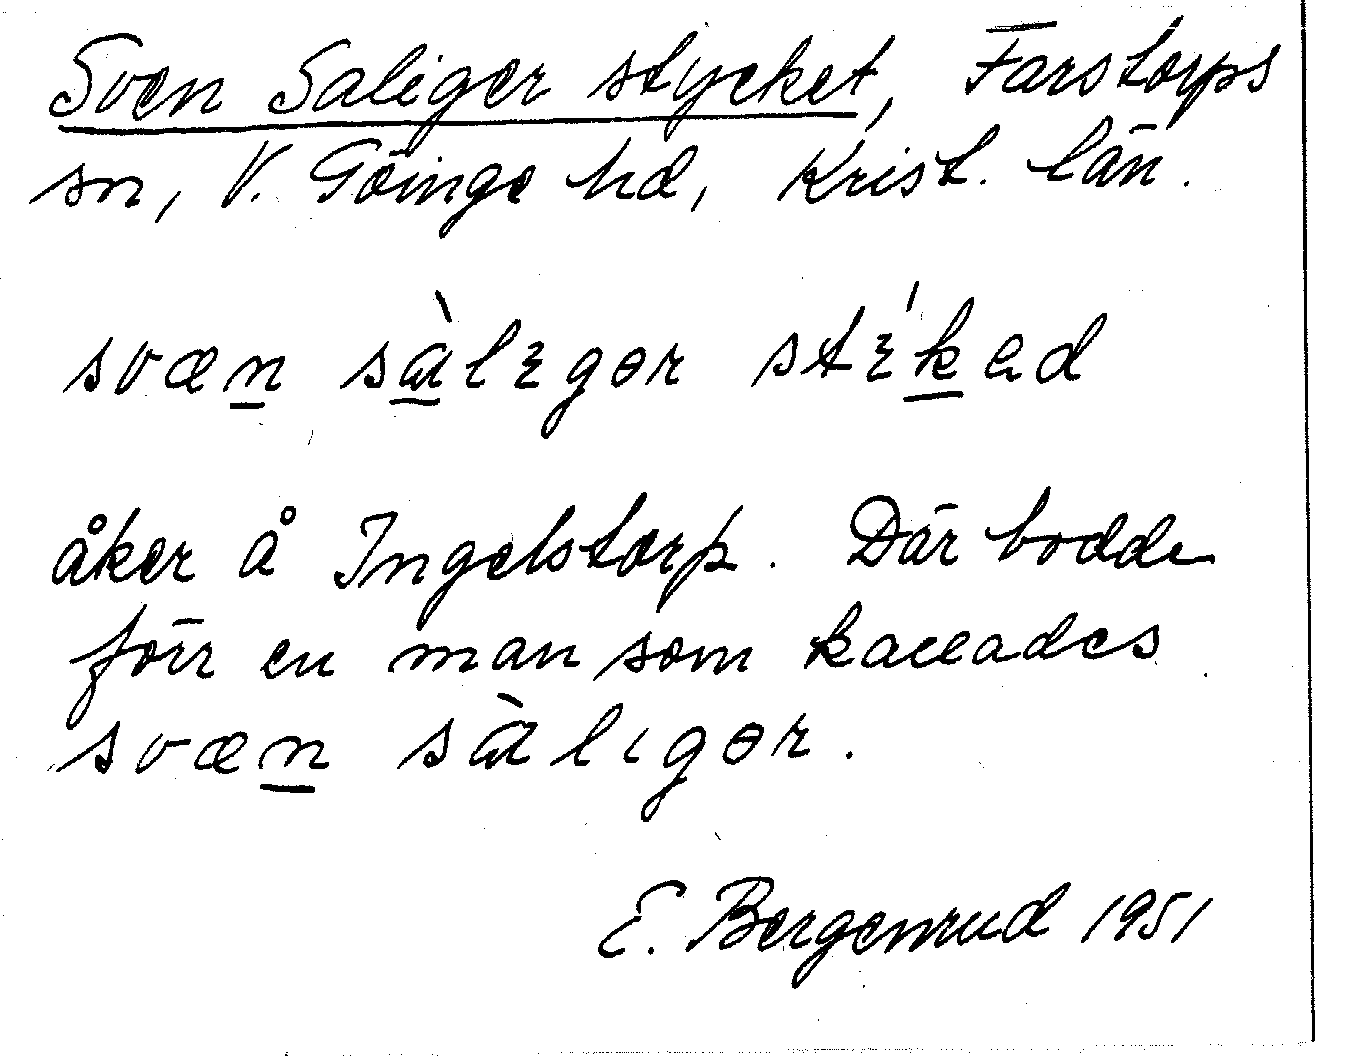 Sven Saliger stycket, Farstorps
sn, V. Göinge hd, Krist. län.
svæn sàlɛgər stɛ́kəd
åker å Ingelstorp. Där bodde
förr en man som kallades
svæn sàlıgər.
E. Bergenrud 1951